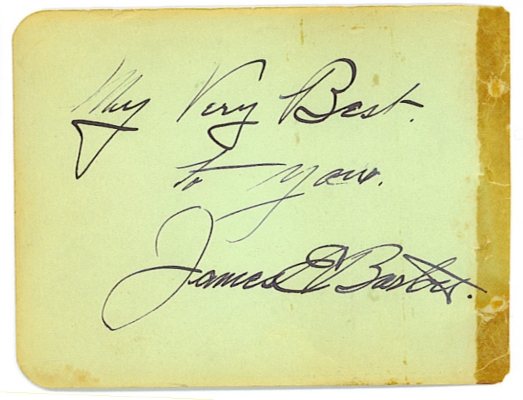 My Very Best.
to you.
James